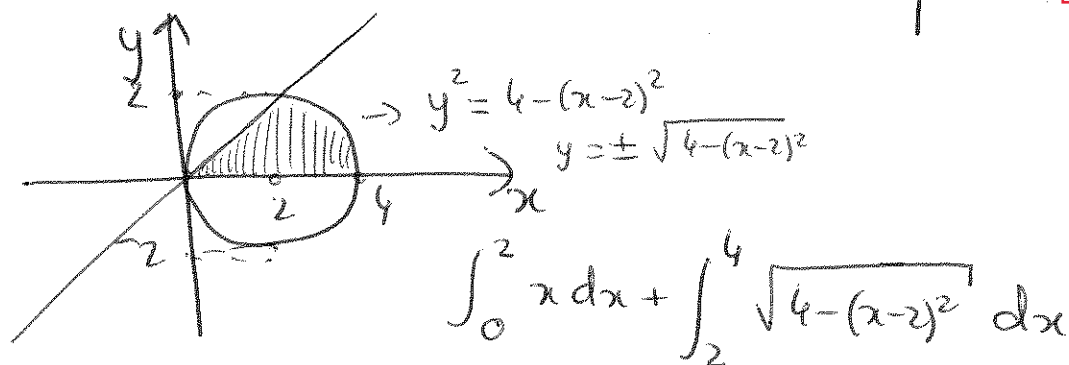 y
2
→ y² = 4-(x-2)²
y = ± √(4-(x-2)²)
x
2
4
-2
∫₀² x dx + ∫₂⁴ √(4-(x-2)²) dx